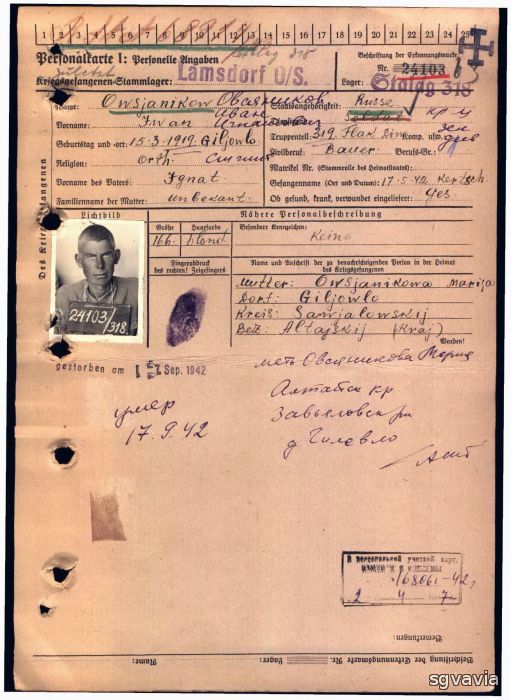 1 2 3 4 5 6 7 8 9 10 11 12 13 14 15 16 17 18 19 20 21 22 23 24 25
Personalkarte I: Personelle Angaben
Stalag 318
Beschriftung der Erkennungsmarke
Kriegsgefangenen-Stammlager: Lamsdorf O/S.
Nr. 24103
Lager: Stalag 318
Des Kriegsgefangenen
Name: Owsjanikow Овсянников
Staatsangehörigkeit: Russe
Vorname: Iwan Иван Игнатович
Dienstgrad: Soldat кр-ц
Geburtstag und -ort: 15.3.1919 Giljowlo
Truppenteil: 319 Flak Komp. usw.:
Religion: Orth.
Zivilberuf: Bauer Berufs-Gr.:
Matrikel Nr. (Stammrolle des Heimatstaates):
Vorname des Vaters: Ignat
Gefangennahme (Ort und Datum): 17.5.42 Kertsch
Familienname der Mutter: unbekant
Ob gesund, krank, verwundet eingeliefert: ges.
Lichtbild
24103/318
Größe
166
Haarfarbe
blond
Fingerabdruck
des rechten! Zeigefingers
Nähere Personalbeschreibung
Besondere Kennzeichen:
Keine
Name und Anschrift der zu benachrichtigenden Person in der Heimat
des Kriegsgefangenen
Mutter: Owsjanikowa Marija
Dorf: Giljowlo
Kreis: Sawjalowskij
Bez: Altajskij (Kraj)
Wenden!
gestorben am 17. Sep. 1942
умер
17.9.42
мать Овсянникова Мария
Алтайск кр
Завьяловск рн
д Гилевло
В персональной учетной карт.
168061-42
2 4 7
Bemerkungen:
Beschriftung der Erkennungsmarke Nr.
Lager:
Name:
sgvavia